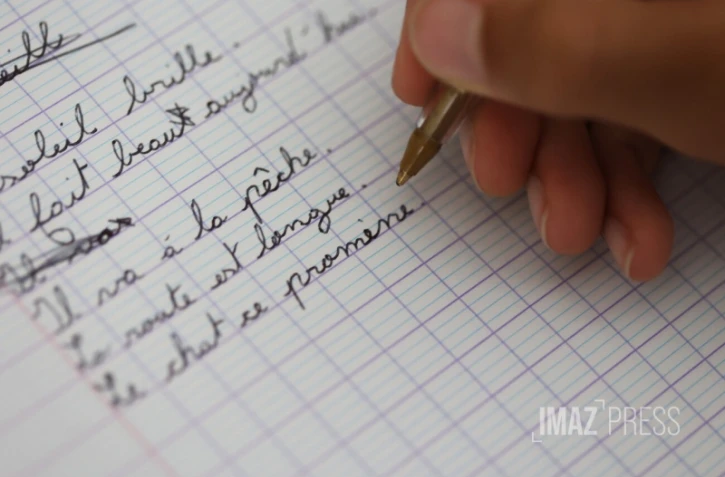 soleil brille.
fait beau aujourd'hui.
Il va à la pêche.
La route est longue.
Le chat ce promène.
IMAZ PRESS